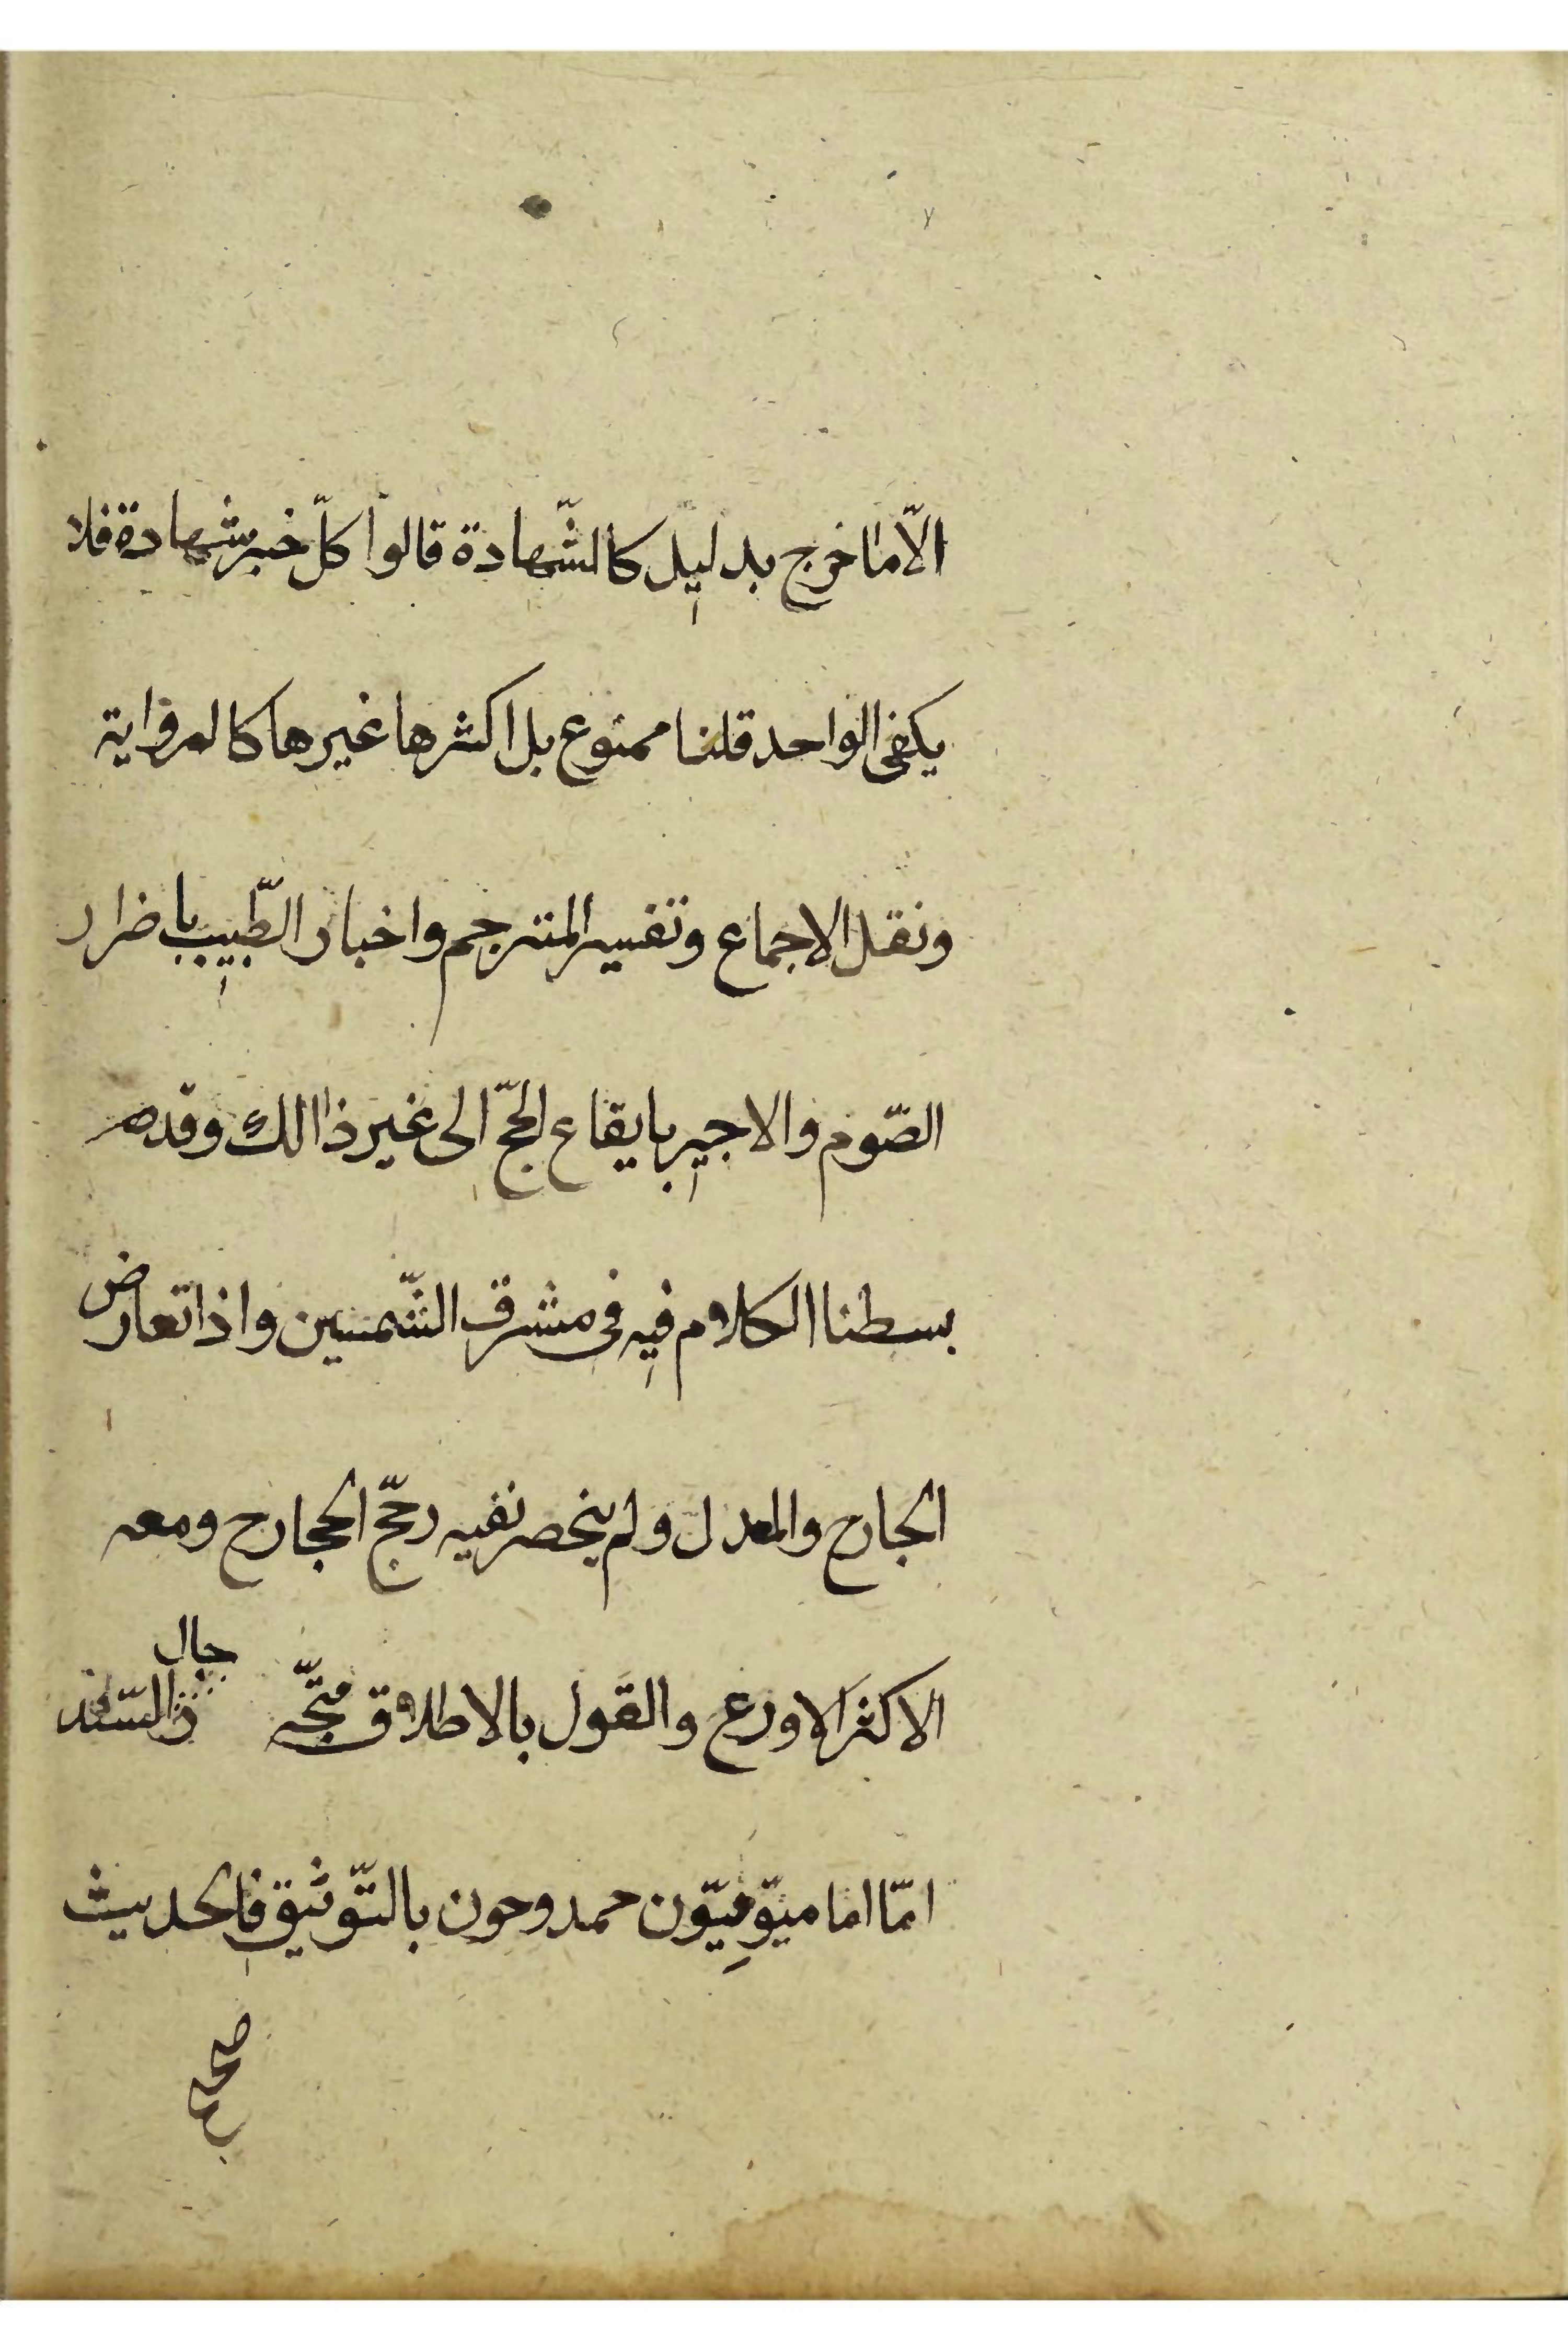 الّا ما خرج بدليل كالشّهادة قالوا كلّ خبر شهادة فلا
يكفى الواحد قلنا ممنوع بل اكثرها غيرها كالرواية
ونقل الاجماع وتفسير المترجم واخبار الطّبيب باضرار
الصّوم والاجير بايقاع الحجّ الى غير ذالك وقد
بسطنا الكلام فيه فى مشرق الشّمسين واذا تعارض
الجارح والمعدل ولم ينحصر نفيه رجّح الجارح ومعه
الاكثر الاورع والقول بالاطلاق متّجه جال السّند
امّا اماميّون ممدوحون بالتّوثيق فالحديث
صحيح